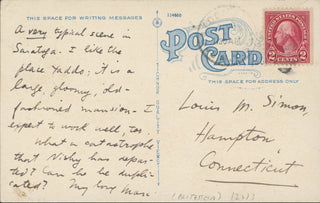 THIS SPACE FOR WRITING MESSAGES
A very typical scene in
Saratoga. I like the
place Yaddo; it is a
large, gloomy, old-
fashioned mansion - I
expect to work well, too.
What a catastrophe
that Nicky has depar-
ted? Can he be dupli-
cated? My love Marc
114602
POST CARD
THIS SPACE FOR ADDRESS ONLY
UNITED STATES POSTAGE
2 CENTS 2
Louis M. Simon,
Hampton,
Connecticut